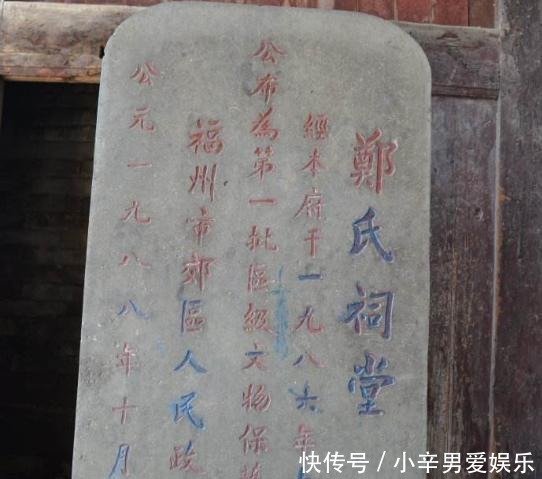 鄭氏祠堂
經本府于一九八六年
公布為第一批區級文物保
福州市郊區人民政
公元一九八八年十月
快传号／小辛男爱娱乐